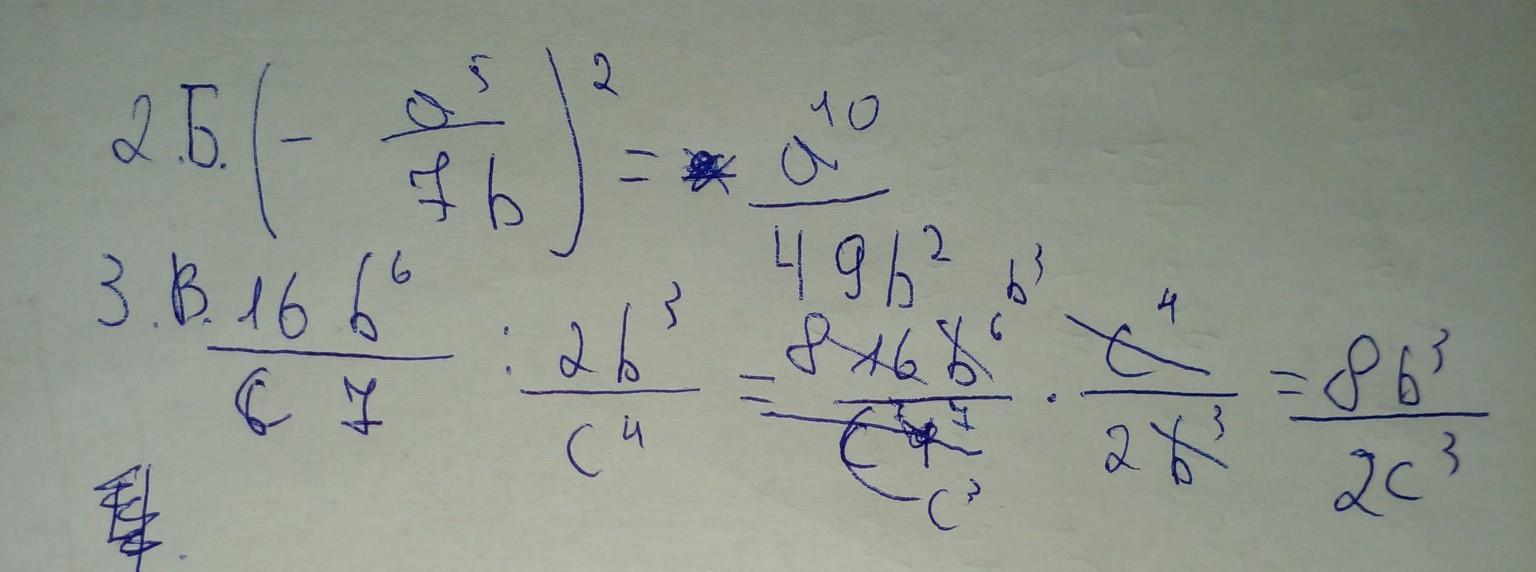 2.Б. (- a⁵/7b)² = a¹⁰/49b²
3.В. 16b⁶/c⁷ : 2b³/c⁴ = 8 16b⁶ b³/c⁷ c³ · c⁴/2b³ = 8b³/2c³